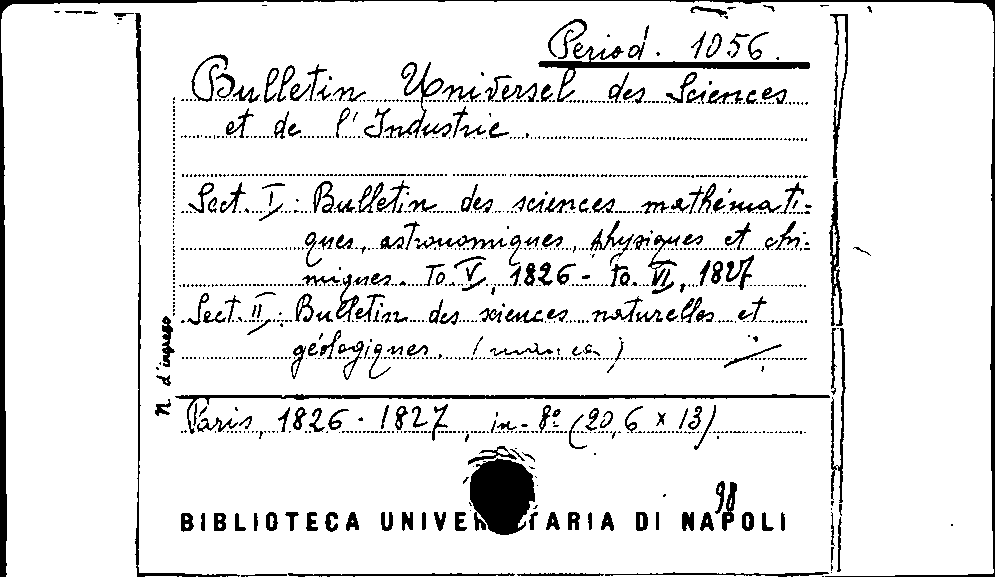 Period. 1056.
Bulletin Universel des Sciences
et de l'Industrie.
Sect. I : Bulletin des sciences mathémati-
ques, astronomiques, physiques et chi-
miques. To. V, 1826 - to. VI, 1827
Sect. II : Bulletin des sciences naturelles et
géologiques. (manca) ./.
N. d'ingresso
Paris, 1826 - 1827, in-8º (20,6 x 13).
98
BIBLIOTECA UNIVER TARIA DI NAPOLI